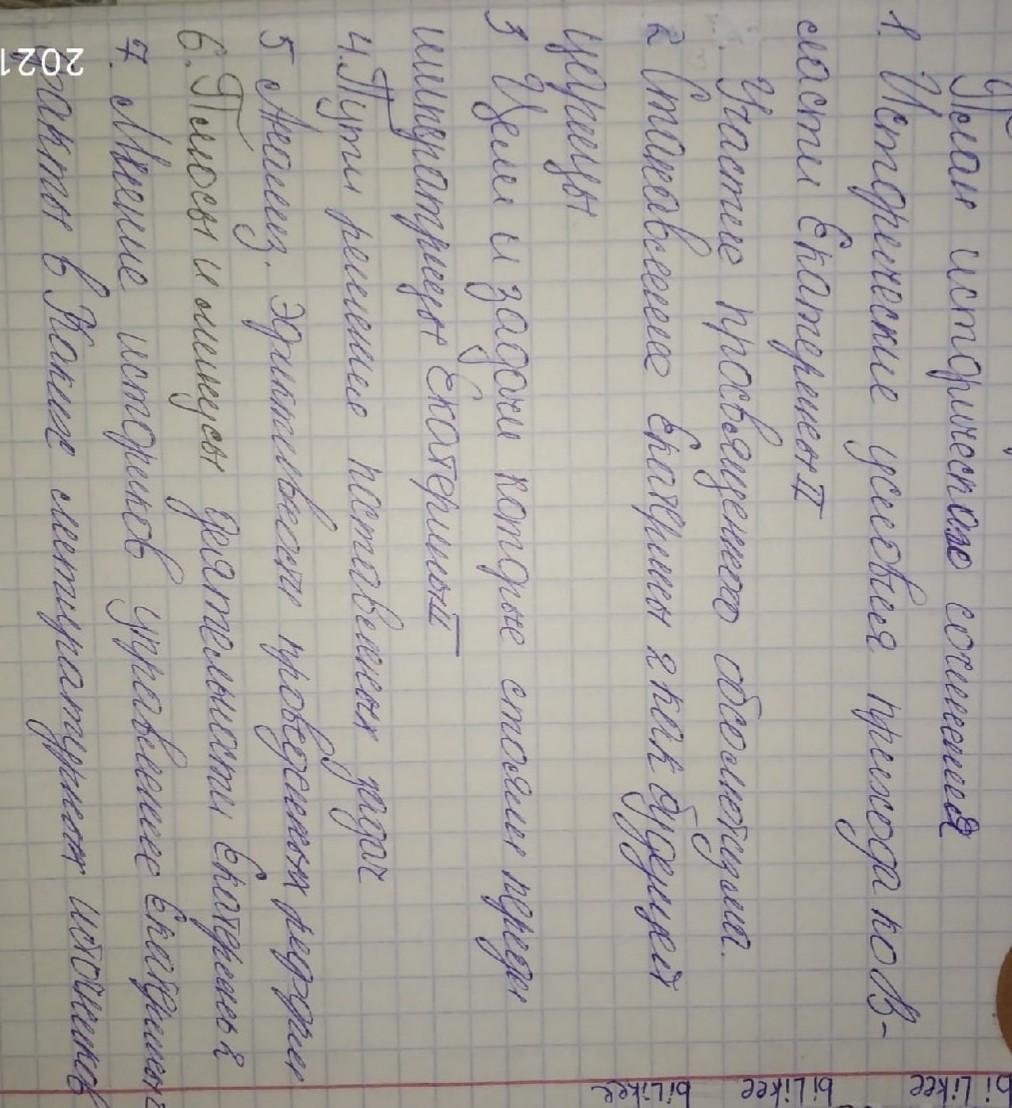 План исторического сочинения
1. Исторические условия прихода к ов-
ласти Екатерины II
Участие просвященного абсолютизма.
2 Становление Екатерины 2 как будущей
царицы
3 Цели и задачи которые стояли перед
императрицы Екатериный
4. Пути решение поставленых задач
5 Анализ. Эфиктивности проведеных реформ
6. Плюсы и минусы деятельности Екатерины 2
7. Мнение историков управление Екатерины 2
факты в каких литературных источников
2021
biLikee
biLikee
biLikee
biLikee